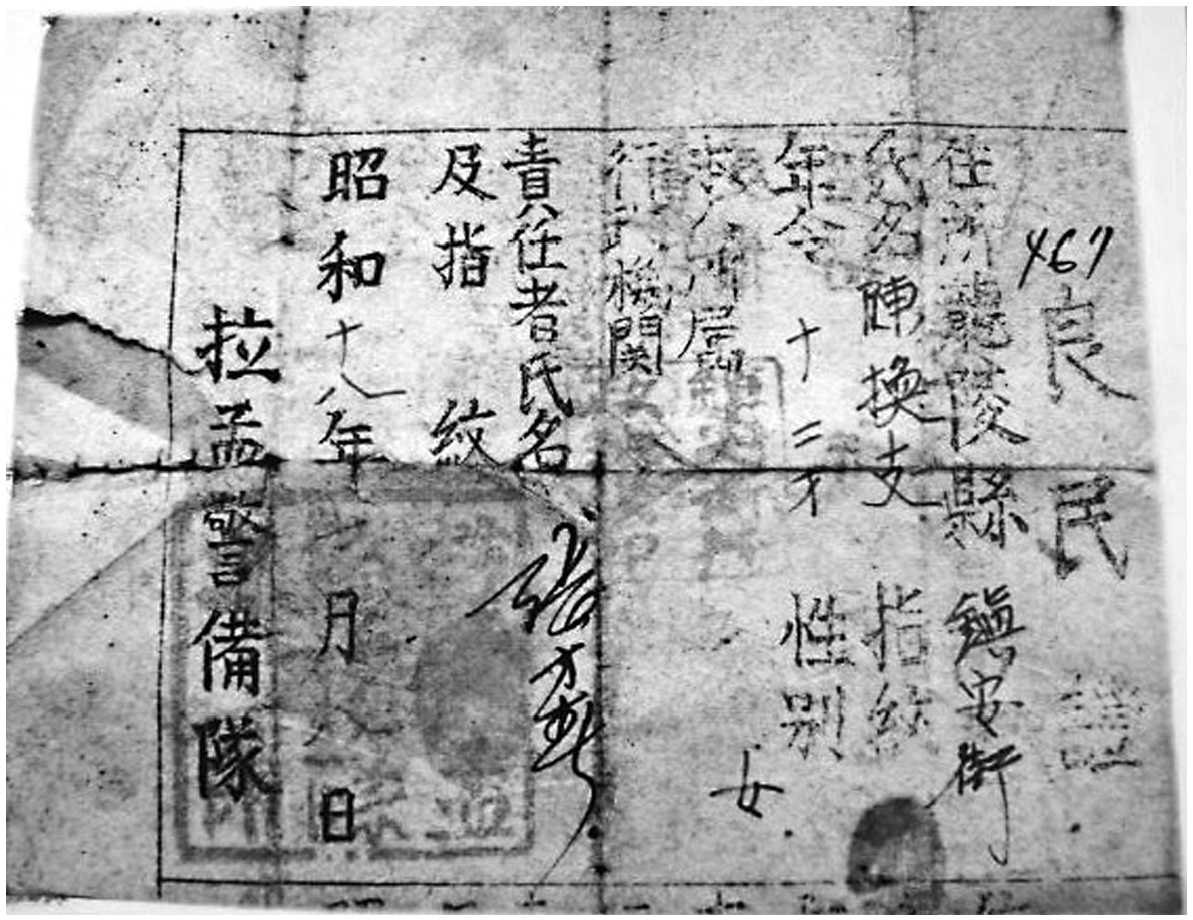 467
良民證
住所龍陵縣 鎮安街
氏名陳換支 指紋
年令 十二才 性別 女
所属
行政機関
責任者氏名
及指紋
昭和十八年 月八日
拉孟警備隊